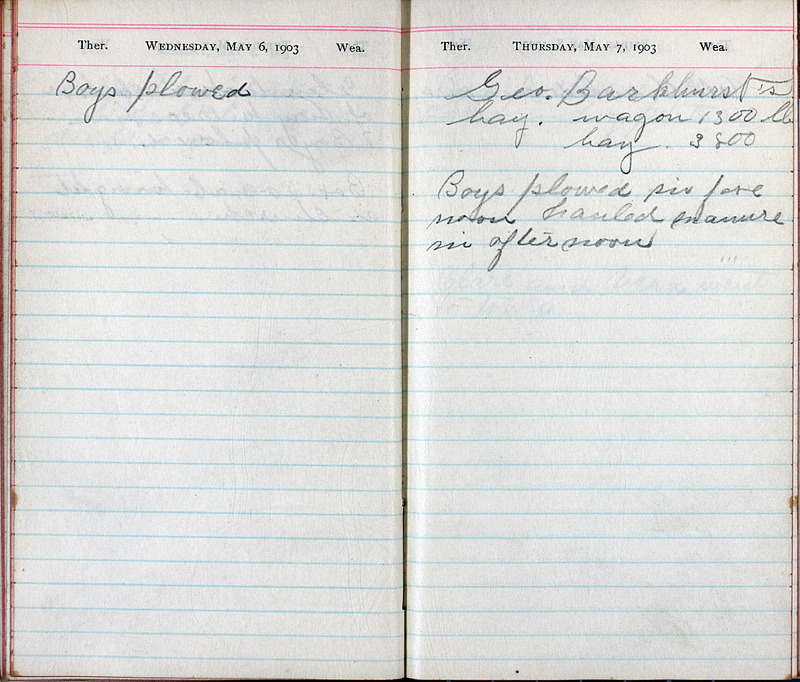 Ther. Wednesday, May 6, 1903 Wea.
Boys plowed
Ther. Thursday, May 7, 1903 Wea.
Geo. Barkhurst's
hay. wagon 1300 lb
hay. 3800
Boys plowed in fore
noon hauled manure
in afternoon
went
to town